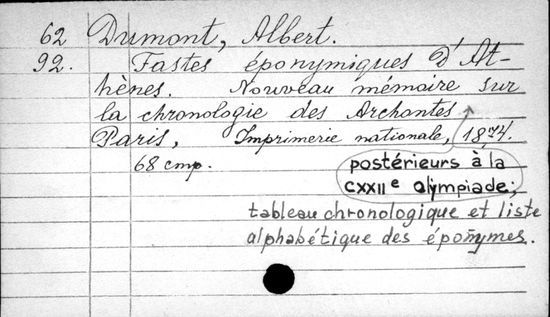 62 Dumont, Albert.
92. Fastes éponymiques d'At-
hènes. Nouveau mémoire sur
la chronologie des Archontes
Paris, Imprimerie nationale, 1874.
68 стр.
postérieurs à la
CXXIIe olympiade;
tableau chronologique et liste
alphabétique des éponymes.